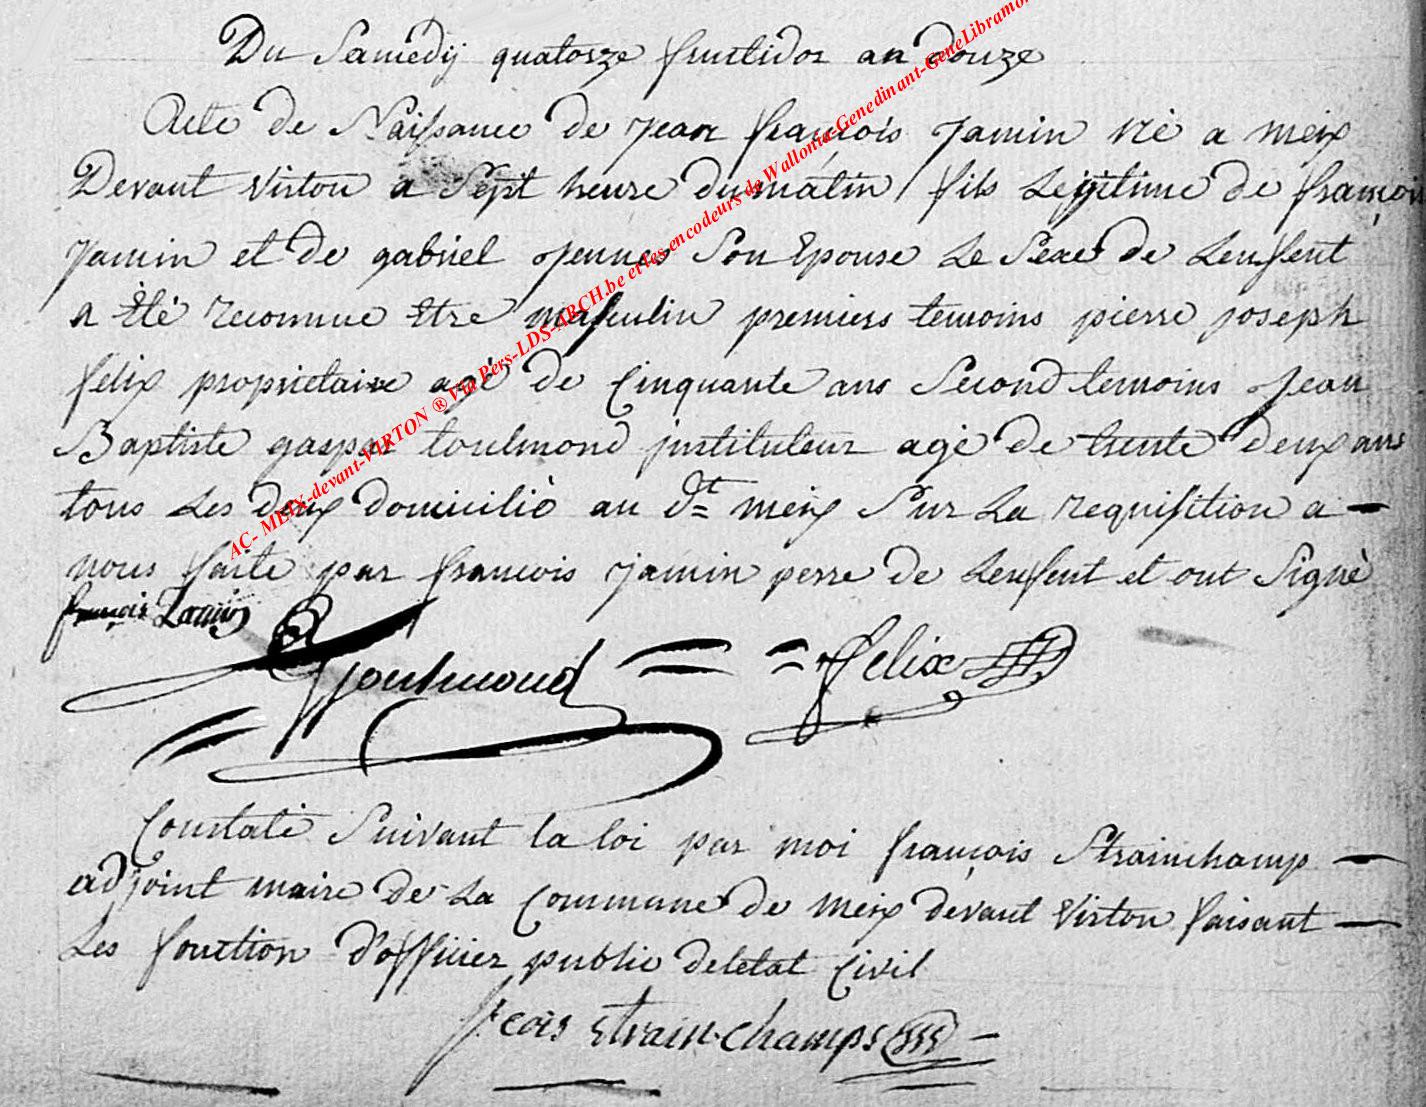 Du Samedij quatorze fructidor an douze
Acte de Naissance de jean francois Jamin né a meix
Devant virton a Sept heure du matin fils Legitime de francois
Jamin et de gabriel jennes Son Epouse Le Sexe de Lenfent
a été reconnue être masculin premiers temoins pierre joseph
felix proprietaire agé de Cinquante ans Second temoins Jean
Baptiste gaspar toulmond jnstituteur agé de trente deux ans
tous Les deux domicilié au dt meix Sur La requisition a
nous faite par francois jamin perre de Lenfent et ont Signé
françois Jamin
Toulmond Felix
Constaté Suivant la loi par moi françois Strainchamp
adjoint maire de La Commune de meix devant Virton faisant
Les fonction d'officier public deletat Civil
fcois strainchamps
AC- MEIX-devant-VIRTON ® Via Pers-LDS-ARCH.be et les encodeurs de Wallonia-Genedinant-GeneLibramo